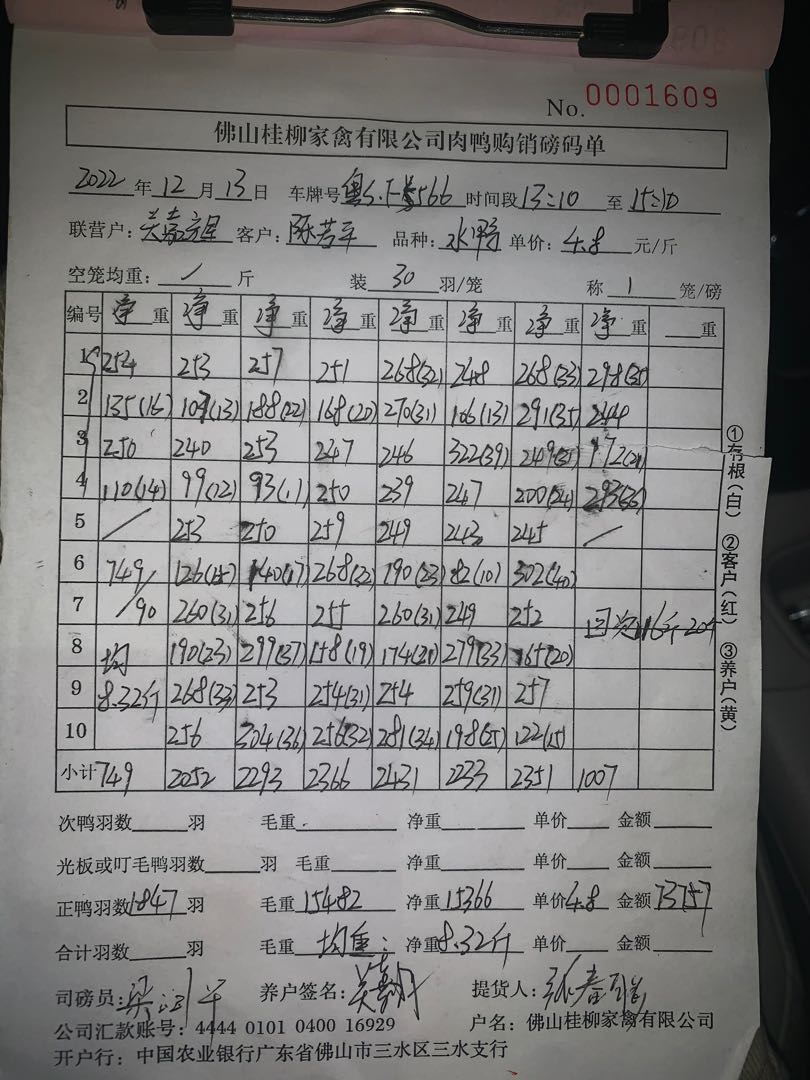 No. 0001609
佛山桂柳家禽有限公司肉鸭购销磅码单
2022 年 12 月 13 日 车牌号 566 时间段 13:10 至 15:10
联营户: 客户: 品种: 水鸭 单价: 4.8 元/斤
空笼均重: / 斤 装 30 羽/笼 称 1 笼/磅
编号 净重 净重 净重 净重 净重 净重 净重 净重 重
1 254 253 257 251 268(32) 248 268(33) 298(35)
2 135(16) 107(13) 188(22) 168(20) 270(31) 106(13) 291(35) 244
3 250 240 253 247 246 322(39) 249(31)
4 110(14) 99(12) 93(11) 250 239 247 200(24) 293(36)
5 / 253 250 259 249 243 245 /
6 749/ 126(15) 140(17) 268(32) 190(23) 82(10) 302(40)
7 /90 260(31) 256 255 260(31) 249 252
8 均 190(23) 299(37) 158(19) 174(21) 279(33) 165(20)
9 8.32斤 268(33) 253 254(31) 254 259(31) 257
10 256 304(36) 256(32) 281(34) 198(25) 122(15)
小计 749 2052 2293 2366 2431 2233 2351 1007
①存根(白) ②客户(红) ③养户(黄)
次鸭羽数 羽 毛重 净重 单价 金额
光板或叮毛鸭羽数 羽 毛重 净重 单价 金额
正鸭羽数 1847 羽 毛重 15482 净重 15366 单价 4.8 金额 73757
合计羽数 羽 毛重 均重: 净重 8.32斤 单价 金额
司磅员: 养户签名: 提货人:
公司汇款账号: 4444 0101 0400 16929 户名: 佛山桂柳家禽有限公司
开户行: 中国农业银行广东省佛山市三水区三水支行